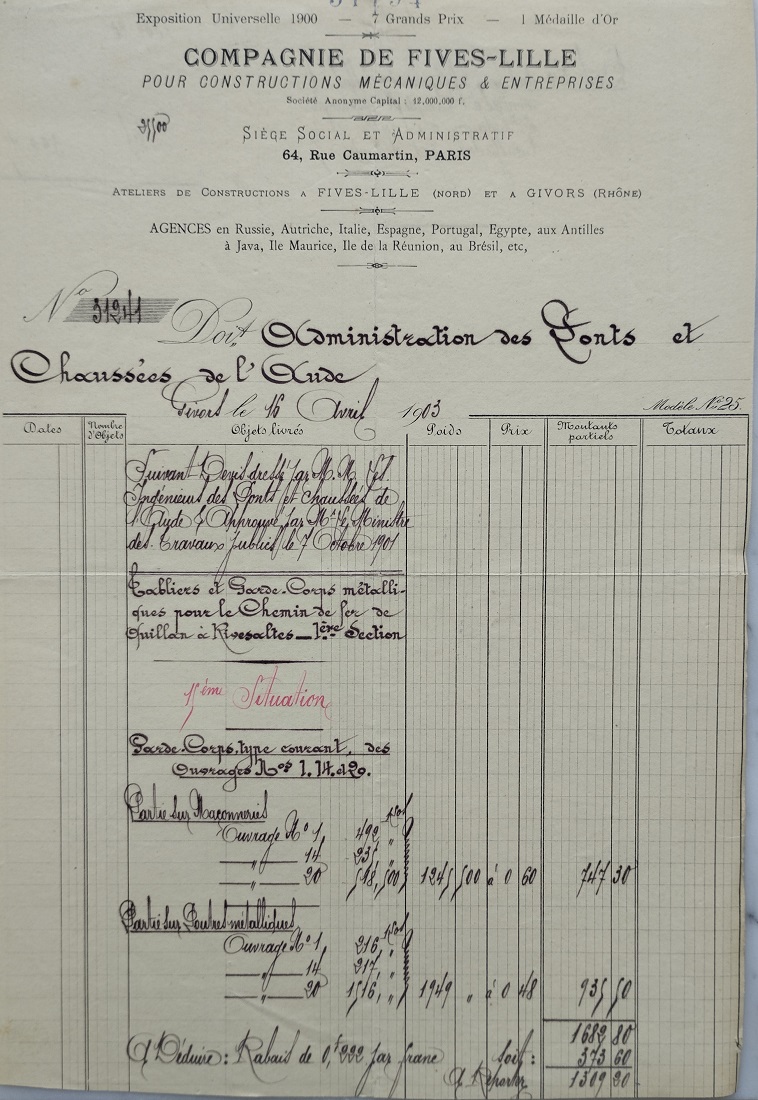 Exposition Universelle 1900 — 7 Grands Prix — 1 Médaille d'Or
COMPAGNIE DE FIVES-LILLE
POUR CONSTRUCTIONS MÉCANIQUES & ENTREPRISES
Société Anonyme Capital : 12,000,000 f.
SIÈGE SOCIAL ET ADMINISTRATIF
64, Rue Caumartin, PARIS
ATELIERS DE CONSTRUCTIONS A FIVES-LILLE (NORD) ET A GIVORS (RHÔNE)
AGENCES en Russie, Autriche, Italie, Espagne, Portugal, Egypte, aux Antilles
à Java, Ile Maurice, Ile de la Réunion, au Brésil, etc,
No 31241 Doit Administration des Ponts et
Chaussées de l'Aude
Givors le 16 Avril 1903 Modèle No 25.
Dates Nombre d'Objets Objets livrés Poids Prix Montants partiels Totaux
Suivant Devis dressé par M.M. les
Ingénieurs des Ponts et chaussées de
l'Aude & Approuvé par Mr le Ministre
des Travaux publics le 7 Octobre 1901
Tabliers et Garde-Corps métalli-
ques pour le Chemin de fer de
Quillan à Rivesaltes_1ère Section
15ème Situation
Garde-Corps type courant, des
Ouvrages Nos 1. 14. et 20.
Partie sur Maçonneries
Ouvrage No 1, 492,
_ " _ 14 235 "
_ " _ 20 518,500 1245 500 à 0 60 747 30
Partie sur Poutres métalliques
Ouvrage No 1, 216,
_ " _ 14 217, "
_ " _ 20 1516, " 1949 " à 0 48 935 50
1682 80
A Déduire : Rabais de 0,f222 par franc soit : 373 60
A Reporter 1309 20